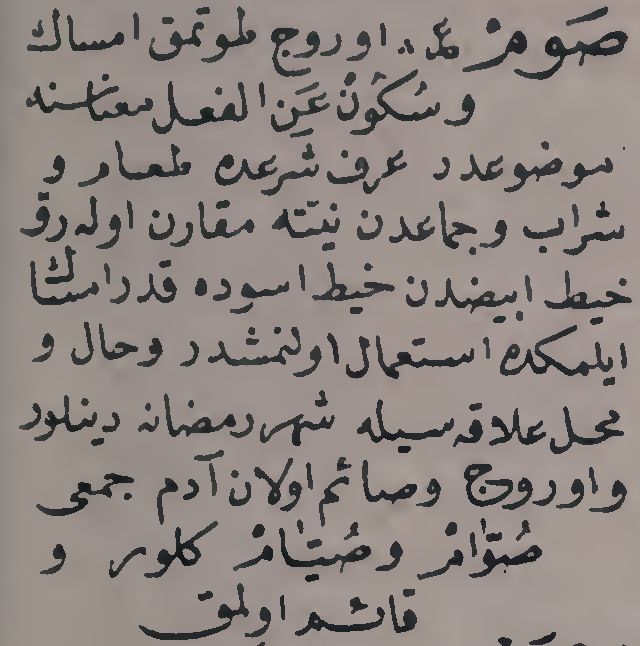 صَومْ عر اوروج طوتمق امساك
و سُكُونْ عَنِ الفعل معناسنه
موضوعدر عرف شرعده طعام و
شراب و جماعدن نيّته مقارن اوله رق
خيط ابيضدن خيط اسوده قدر امساك
ايلمكده استعمال اولنمشدر و حال و
محل علاقه سيله شهر رمضانه دينلور
و اوروج و صائم اولان آدم جمعى
صُوَّامْ و صُيَّامْ كلور و
قائم اولمق